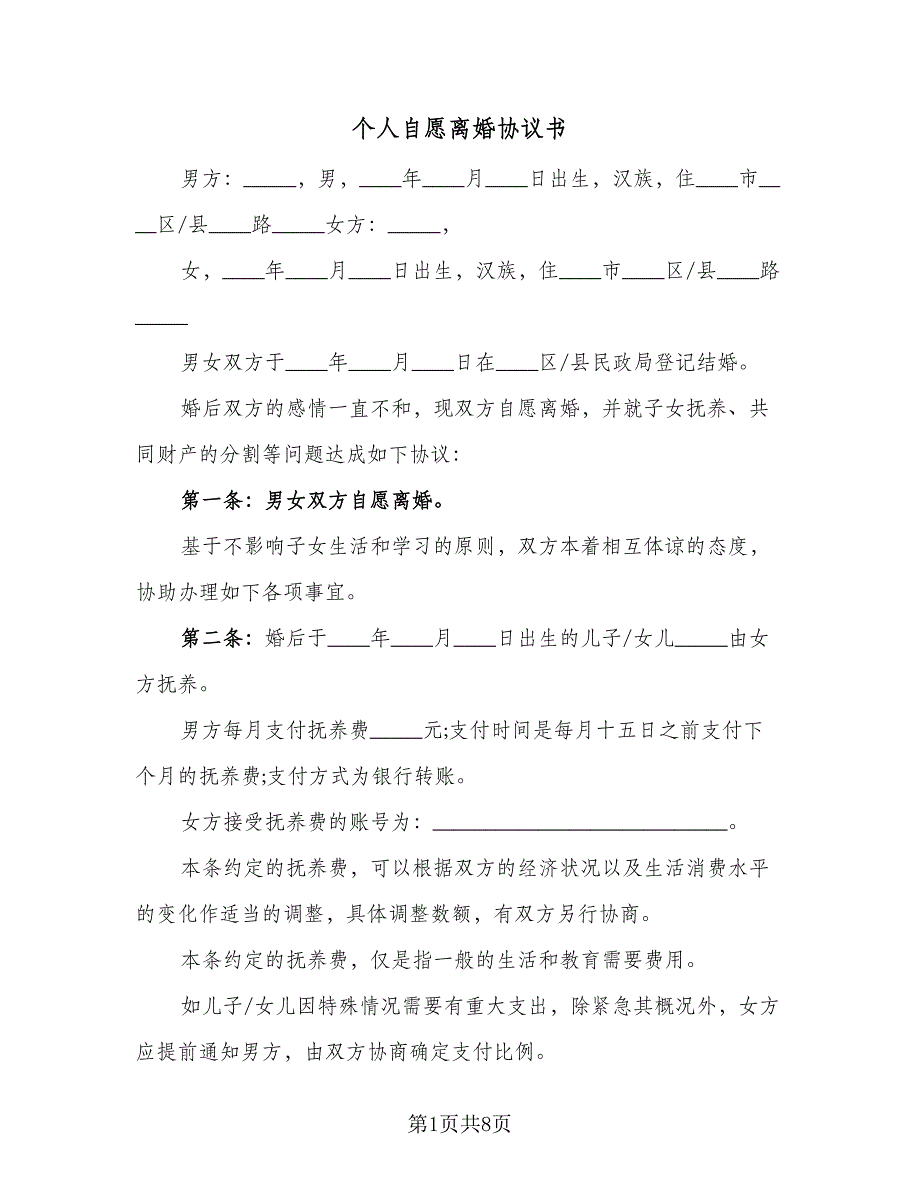 个人自愿离婚协议书
男方：_____，男，____年____月____日出生，汉族，住____市__
__区/县____路_____女方：_____，
女，____年____月____日出生，汉族，住____市____区/县____路
_____
男女双方于____年____月____日在____区/县民政局登记结婚。
婚后双方的感情一直不和，现双方自愿离婚，并就子女抚养、共
同财产的分割等问题达成如下协议：
第一条：男女双方自愿离婚。
基于不影响子女生活和学习的原则，双方本着相互体谅的态度，
协助办理如下各项事宜。
第二条：婚后于____年____月____日出生的儿子/女儿_____由女
方抚养。
男方每月支付抚养费_____元;支付时间是每月十五日之前支付下
个月的抚养费;支付方式为银行转账。
女方接受抚养费的账号为：____________________________。
本条约定的抚养费，可以根据双方的经济状况以及生活消费水平
的变化作适当的调整，具体调整数额，有双方另行协商。
本条约定的抚养费，仅是指一般的生活和教育需要费用。
如儿子/女儿因特殊情况需要有重大支出，除紧急其概况外，女方
应提前通知男方，由双方协商确定支付比例。
第1页共8页